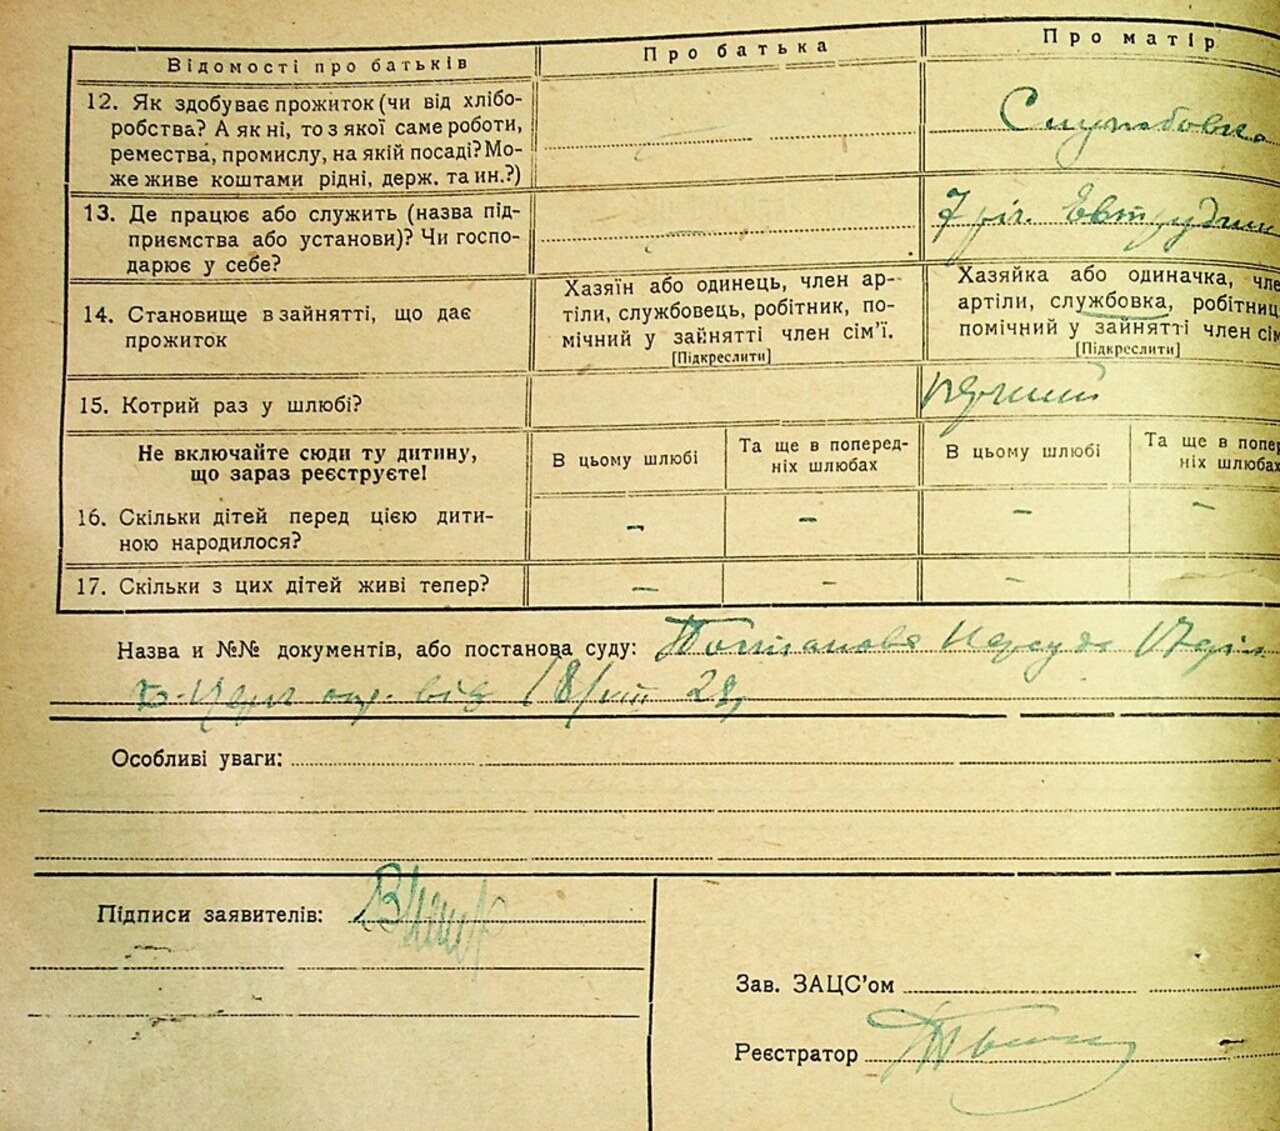 Відомості про батьків
Про батька
Про матір
12. Як здобуває прожиток (чи від хлібо-
робства? А як ні, то з якої саме роботи,
ремества, промислу, на якій посаді? Мо-
же живе коштами рідні, держ. та ин.?)
Службовка
13. Де працює або служить (назва під-
приємства або установи)? Чи госпо-
дарює у себе?
7 річ.
14. Становище в зайнятті, що дає
прожиток
Хазяїн або одинець, член ар-
тіли, службовець, робітник, по-
мічний у зайнятті член сім'ї.
[Підкреслити]
Хазяйка або одиначка, чле
артіли, службовка, робітниц
помічний у зайнятті член сім
[Підкреслити]
15. Котрий раз у шлюбі?
Не включайте сюди ту дитину,
що зараз реєструєте!
В цьому шлюбі
Та ще в поперед-
ніх шлюбах
В цьому шлюбі
Та ще в попер
ніх шлюбах
16. Скільки дітей перед цією дити-
ною народилося?
– – – –
17. Скільки з цих дітей живі тепер?
– – –
Назва и №№ документів, або постанова суду: Постанова Нарсуда
Б-Церк окр. від 18/VIII 28
Особливі уваги:
Підписи заявителів:
Зав. ЗАЦС'ом
Реєстратор